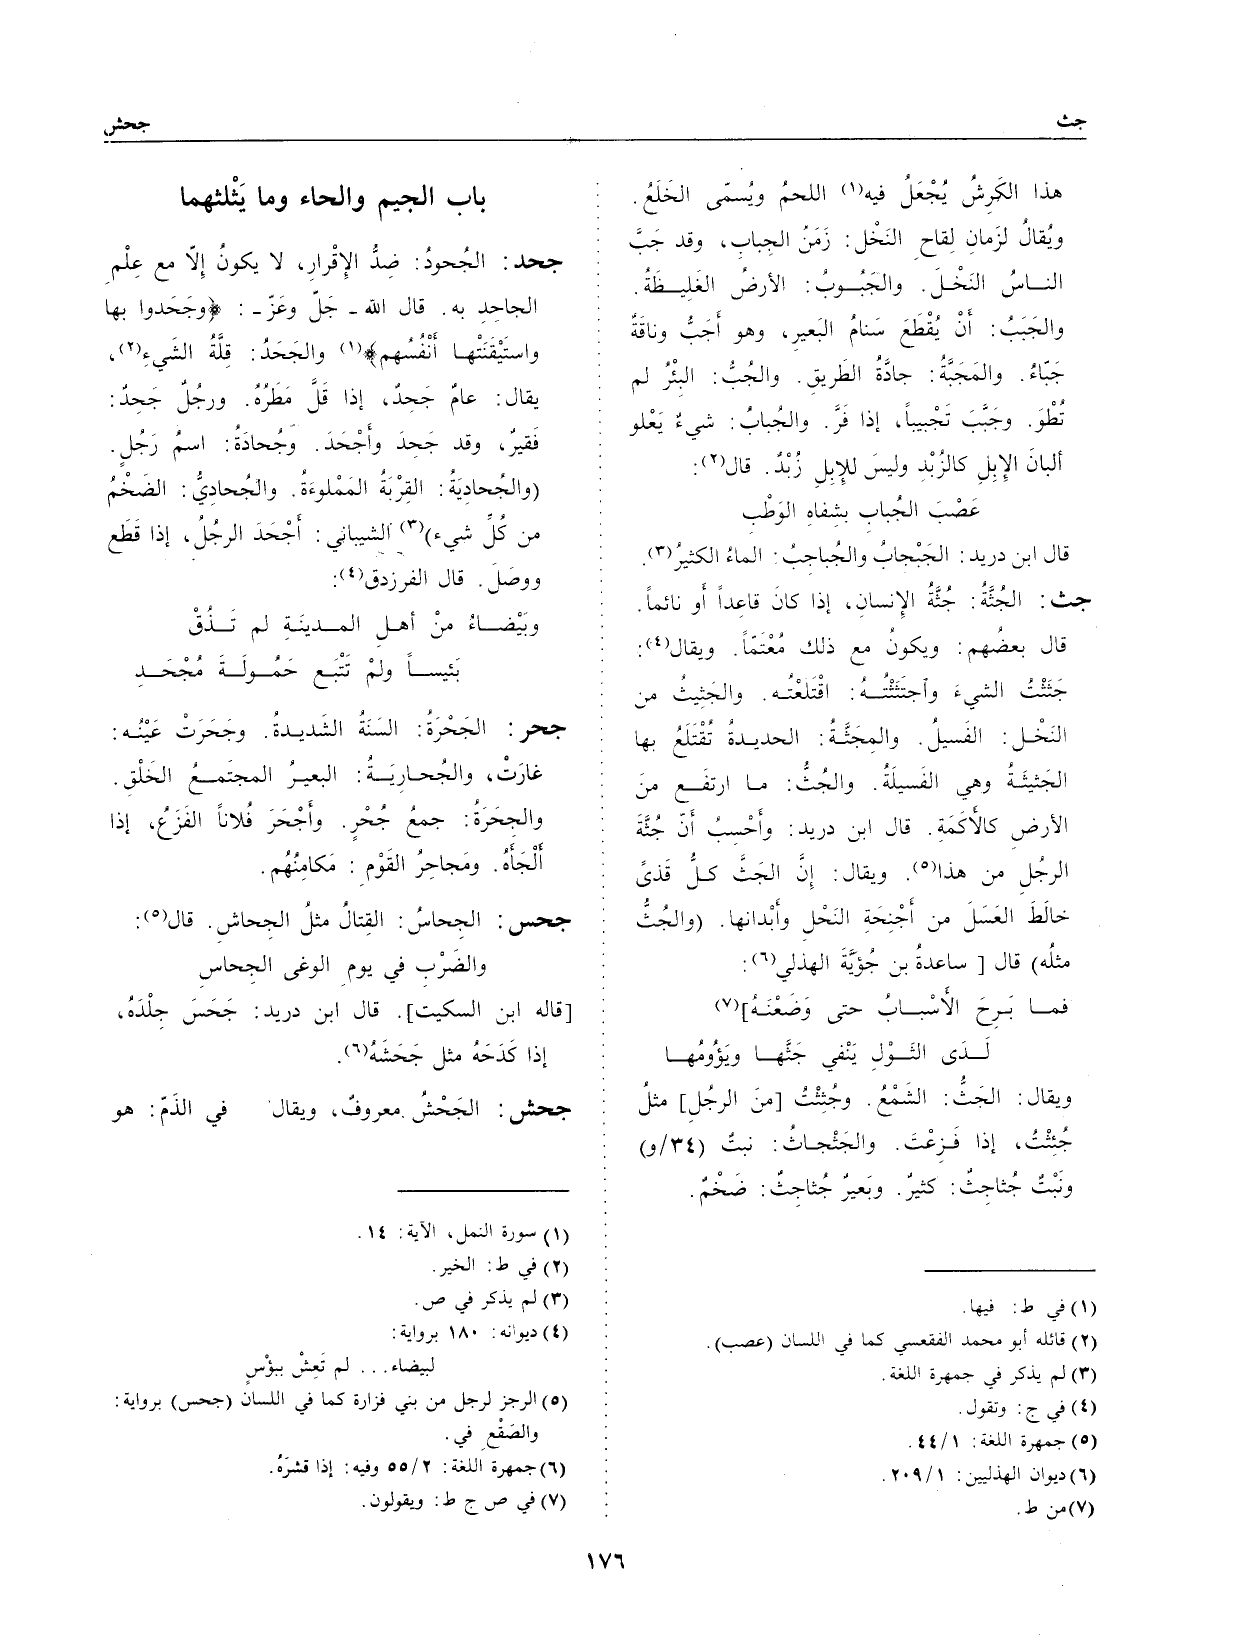 جث
جحش
هذا الكَرِشُ يُجْعَلُ فيه(١) اللحمُ ويُسمّى الخَلَعُ.
ويُقالُ لزَمانِ لِقاحِ النَخْل: زَمَنُ الجِبابِ، وقد جَبَّ
الناسُ النَخْلَ. والجَبُوبُ: الأرضُ الغَلِيظَةُ.
والجَبَبُ: أَنْ يُقْطَعَ سَنامُ البَعيرِ، وهو أَجَبُّ وناقَةٌ
جَبّاءُ. والمَجَبَّةُ: جادَّةُ الطَريقِ. والجُبُّ: البِئْرُ لم
تُطْوَ. وجَبَّبَ تَجْبيباً، إذا فَرَّ. والجُبابُ: شيءٌ يَعْلو
ألبانَ الإبِلِ كالزُبْدِ وليسَ للإِبِلِ زُبْدٌ. قال(٢):
عَصْبَ الجُبابِ بشفاهِ الوَطْبِ
قال ابن دريد: الجَبْجابُ والجُباجِبُ: الماءُ الكثيرُ(٣).
جث: الجُثَّةُ: جُثَّةُ الإنسانِ، إذا كانَ قاعِداً أو نائماً.
قال بعضُهم: ويكونُ مع ذلك مُعْتَمّاً. ويقال(٤):
جَثَثْتُ الشيءَ وٱجتَثَثْتُهُ: اقْتَلَعْتُه. والجَثِيثُ من
النَخْل: الفَسيلُ. والمِجَثَّةُ: الحديدةُ تُقْتَلَعُ بها
الجَثيثَةُ وهي الفَسيلَةُ. والجُثُّ: ما ارتفَع مِنَ
الأرضِ كالأَكَمَةِ. قال ابن دريد: وأَحْسِبُ أَنّ جُثَّةَ
الرجُلِ من هذا(٥). ويقال: إنَّ الجَثَّ كلُّ قَذىً
خالَطَ العَسَلَ من أَجْنِحَةِ النَحْلِ وأَبْدانها. (والجُثُّ
مثلُه) قال [ ساعدةُ بن جُؤيَّةَ الهذلي(٦):
فما بَرِحَ الأَسْبابُ حتى وَضَعْنَهُ](٧)
لَدَى الثَوْلِ يَنْفي جَثَّها ويَؤُومُها
ويقال: الجَثُّ: الشَمْعُ. وجُثِثْتُ [مِنَ الرجُلِ] مثلُ
جُئِثْتُ، إذا فَزِعْتَ. والجَثْجاثُ: نبتٌ (٣٤/و)
ونَبْتٌ جُثاجِثٌ: كثيرٌ. وبَعيرٌ جُثاجِثٌ: ضَخْمٌ.
(١) في ط: فيها.
(٢) قائله أبو محمد الفقعسي كما في اللسان (عصب).
(٣) لم يذكر في جمهرة اللغة.
(٤) في ج: وتقول.
(٥) جمهرة اللغة: ٤٤/١.
(٦) ديوان الهذليين: ٢٠٩/١.
(٧) من ط.
باب الجيم والحاء وما يَثْلثهما
جحد: الجُحودُ: ضِدُّ الإقْرارِ، لا يكونُ إلّا مع عِلْمِ
الجاحِدِ به. قال الله - جَلّ وعَزّ -: ﴿وجَحَدوا بها
واستَيْقَنَتْها أَنْفُسُهم﴾(١) والجَحَدُ: قِلَّةُ الشَيءِ(٢)،
يقال: عامٌ جَحِدٌ، إذا قَلَّ مَطَرُهُ. ورجُلٌ جَحِدٌ:
فَقيرٌ، وقد جَحِدَ وأَجْحَدَ. وجُحادَةُ: اسمُ رَجُلٍ.
(والجُحادِيَةُ: القِرْبَةُ المَمْلوءَةُ. والجُحادِيُّ: الضَخْمُ
من كُلِّ شيء)(٣) الشيباني: أَجْحَدَ الرجُلُ، إذا قَطَع
ووصَلَ. قال الفرزدق(٤):
وبَيْضاءُ منْ أهلِ المدينَةِ لم تَذُقْ
بَئيساً ولمْ تَتْبَع حَمُولَةَ مُجْحَدِ
جحر: الجَحْرَةُ: السَنَةُ الشَديدةُ. وجَحَرَتْ عَيْنُه:
غارَتْ، والجُحارِيَةُ: البعيرُ المجتَمِعُ الخَلْقِ.
والجِحَرَةُ: جمعُ جُحْرٍ. وأَجْحَرَ فُلاناً الفَزَعُ، إذا
أَلْجَأَهُ. ومَجاحِرُ القَوْمِ: مَكامِنُهُم.
جحس: الجِحاسُ: القِتالُ مثلُ الجِحاشِ. قال(٥):
والضَرْبِ في يومِ الوغى الجِحاسِ
[قاله ابن السكيت]. قال ابن دريد: جَحَسَ جِلْدَهُ،
إذا كَدَحَهُ مثل جَحَشَهُ(٦).
جحش: الجَحْشُ معروفٌ، ويقال في الذَمّ: هو
(١) سورة النمل، الآية: ١٤.
(٢) في ط: الخير.
(٣) لم يذكر في ص.
(٤) ديوانه: ١٨٠ برواية:
لبيضاء... لم تَعِشْ ببؤْسٍ
(٥) الرجز لرجل من بني فزارة كما في اللسان (جحس) برواية:
والصَقْعِ في.
(٦) جمهرة اللغة: ٥٥/٢ وفيه: إذا قشرَهُ.
(٧) في ص ج ط: ويقولون.
١٧٦